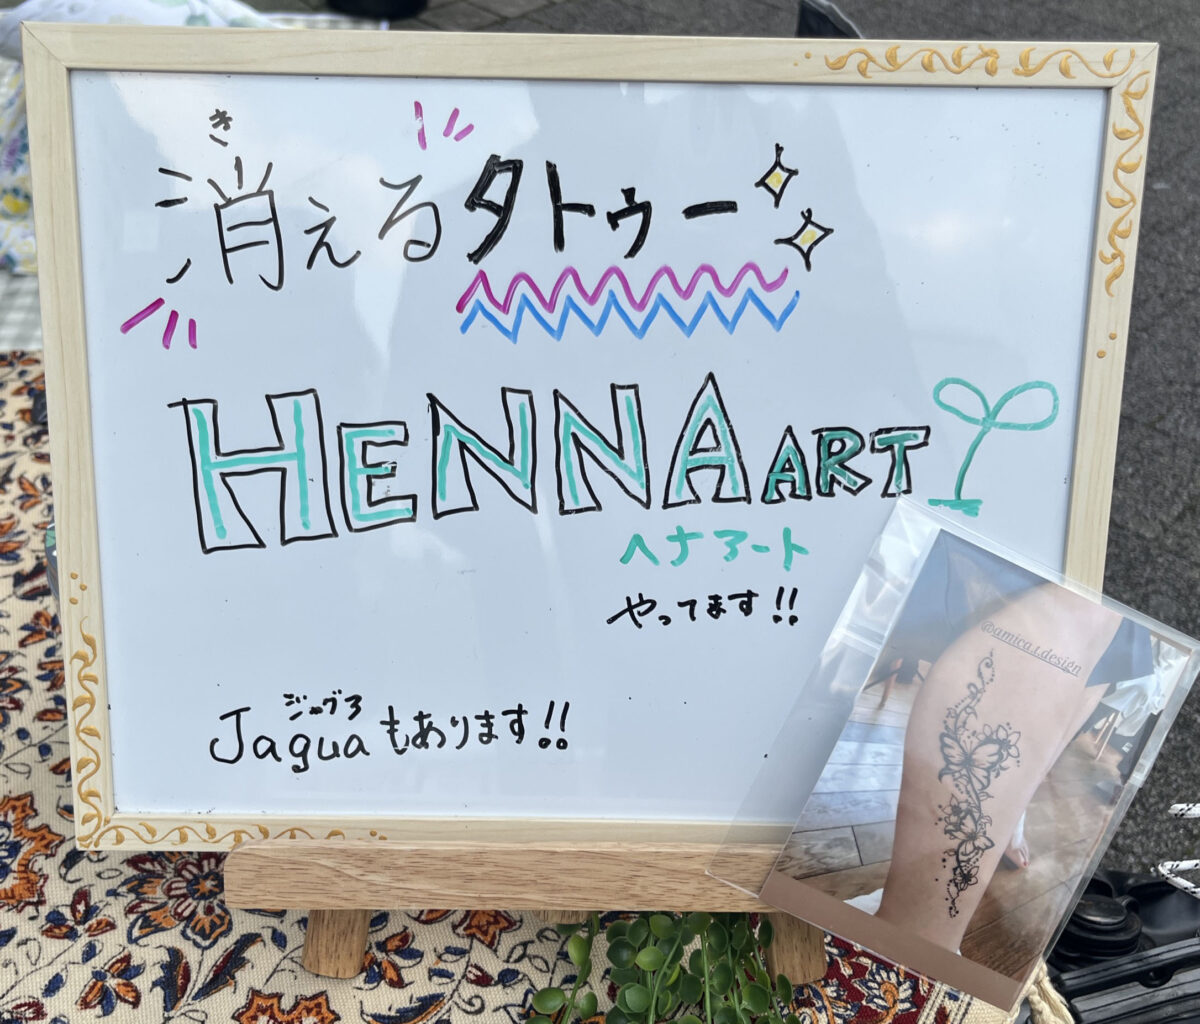 き
消えるタトゥー
HENNA ART
ヘナアート
やってます!!
ジャグア
Jaguaもあります!!
@amica.i.design